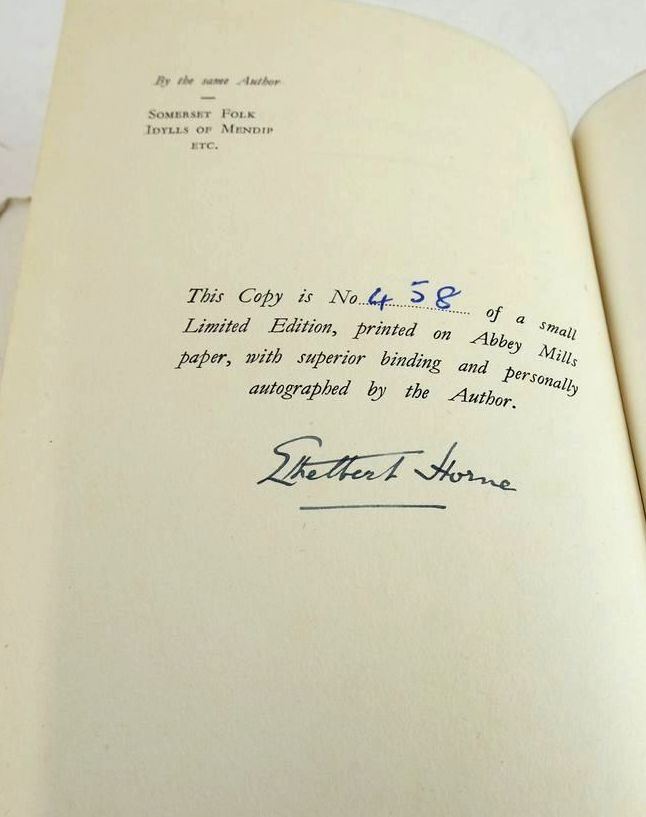 By the same Author
SOMERSET FOLK
IDYLLS OF MENDIP
ETC.
This Copy is No. 458 of a small
Limited Edition, printed on Abbey Mills
paper, with superior binding and personally
autographed by the Author.
Ethelbert Horne